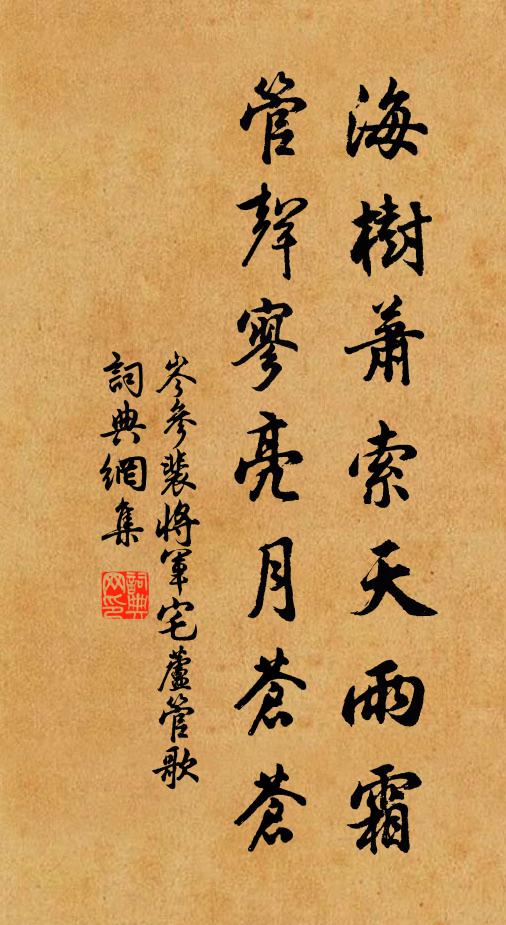 海樹蕭索天雨霜
管聲寥亮月蒼蒼
岑參裴將軍宅蘆管歌
詞典網集
詞典网印